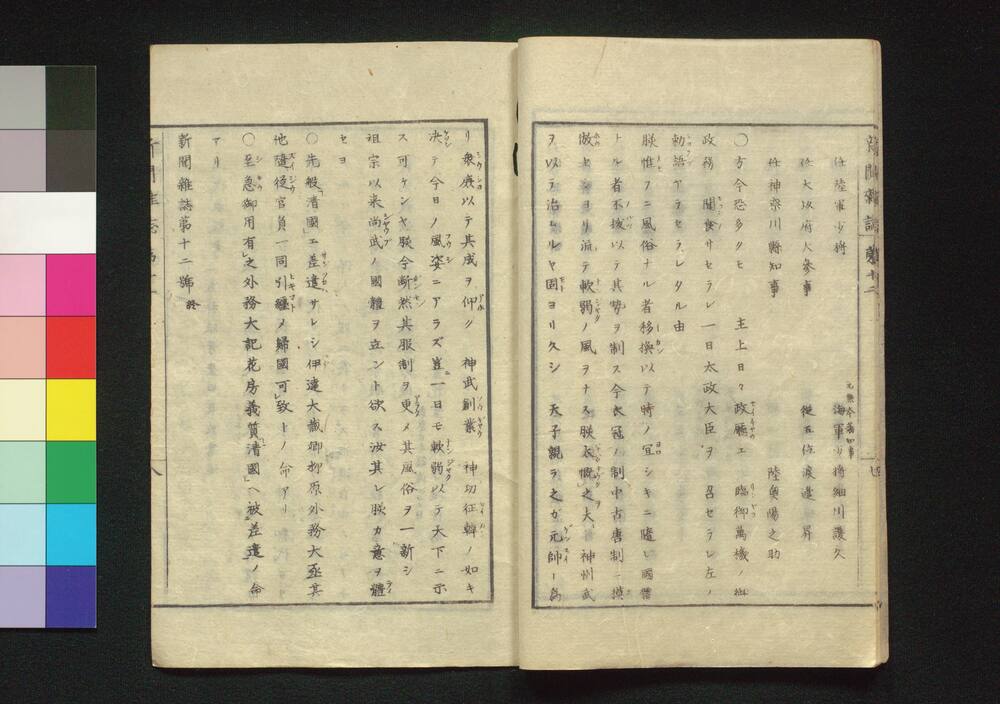 新聞雜誌 第十二
任陸軍少將 元熊本藩知事 海軍少將細川護久
任大政府大參事 從五位渡邊昇
任神奈川縣知事 陸奥陽之助
〇方今恐多クモ 主上日々政廳エ 臨御萬機ノ御
政務 聞食サセラレ一日太政大臣ヲ 召セラレ左ノ
勅語アラセラレタル由
朕惟フニ風俗ナル者移換以テ時ノ宜シキニ隨ヒ國體
トル者不拔以テ其勢ヲ制ス今衣冠ノ制中古唐制ニ摸
倣セシヨリ流テ軟弱ノ風ヲナス朕太慨之夫 神州武
ヲ以テ治ムルヤ固ヨリ久シ 天子親ラ之カ元帥ト爲
リ衆庶以テ其風ヲ仰ク 神武創業 神功征韓ノ如キ
決テ今日ノ風姿ニアラズ豈一日モ軟弱以テ天下ニ示
ス可ケンヤ朕今斷然其服制ヲ更メ其風俗ヲ一新シ
祖宗以来尚武ノ國體ヲ立ント欲ス汝其レ朕カ意ヲ體
セヨ
〇先般清國エ差遣サレシ伊達大藏卿柳原外務大丞其
他隨從官員一同引纏メ歸國可致トノ命アリ
〇至急御用有之外務大記花房義質清國ヘ被差遣ノ命
アリ
新聞雜誌第十二號 終